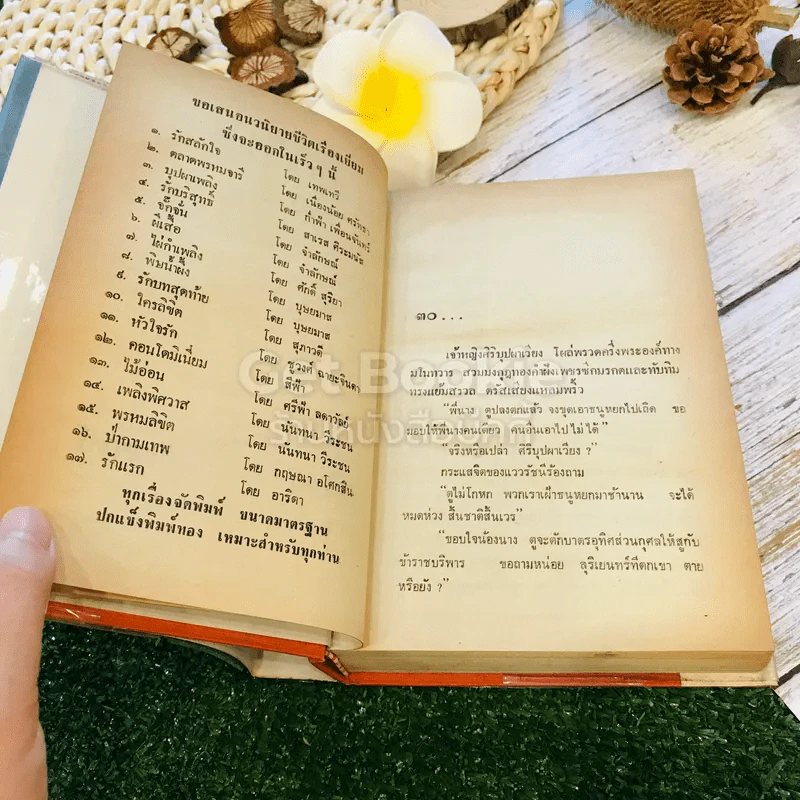 ขอเสนอนวนิยายชีวิตเรื่องเยี่ยม
ซึ่งจะออกในเร็ว ๆ นี้
๑. รักสลักใจ โดย เทพเทวี
๒. ตลาดพรหมจารี โดย เนื่องน้อย ศรัทธา
๓. บุปผาเพลิง โดย ก่ำฟ้า เพื่อนจันทร์
๔. รักบริสุทธิ์ โดย สาเรส ศิระมนัส
๕. จั๊กจั่น โดย จำลักษณ์
๖. ผีเสื้อ โดย จำลักษณ์
๗. ไผ่กำเพลิง โดย ศักดิ์ สุริยา
๘. พิษน้ำผึ้ง โดย บุษยมาส
๙. รักบทสุดท้าย โดย บุษยมาส
๑๐. ใครลิขิต โดย สุภาวดี
๑๑. หัวใจรัก โดย ชูวงศ์ ฉายะจินดา
๑๒. คอนโดมิเนี่ยม โดย สีฟ้า
๑๓. ไม้อ่อน โดย ศรีฟ้า ลดาวัลย์
๑๔. เพลิงพิศวาส โดย นันทนา วีระชน
๑๕. พรหมลิขิต โดย นันทนา วีระชน
๑๖. ป่ากามเทพ โดย กฤษณา อโศกสิน
๑๗. รักแรก โดย อาริตา
ทุกเรื่องจัดพิมพ์ ขนาดมาตรฐาน
ปกแข็งพิมพ์ทอง เหมาะสำหรับทุกท่าน
๓๐...
เจ้าหญิงศิริบุปผาเวียง โผล่พรวดครึ่งพระองค์ทาง
มโนทวาร สวมมงกุฎทองคำฝังเพชรซีกมรกตและทับทิม
ทรงแย้มสรวล ตรัสเสียงแหลมพริ้ว
“พี่นาง ตูปลงตกแล้ว จงขุดเอาธนูหยกไปเถิด ขอ
มอบให้พี่นางคนเดียว คนอื่นเอาไปไม่ได้”
“จริงหรือเปล่า ศิริบุปผาเวียง ?”
กระแสจิตของแววรัชนีร้องถาม
“ตูไม่โกหก พวกเราเฝ้าธนูหยกมาช้านาน จะได้
หมดห่วง สิ้นชาติสิ้นเวร”
“ขอบใจน้องนาง ตูจะตักบาตรอุทิศส่วนกุศลให้สูกับ
ข้าราชบริพาร ขอถามหน่อย สุริเยนทร์ที่ตกเขา ตาย
หรือยัง ?”
Get Bookie
ร้านหนังสือมือ